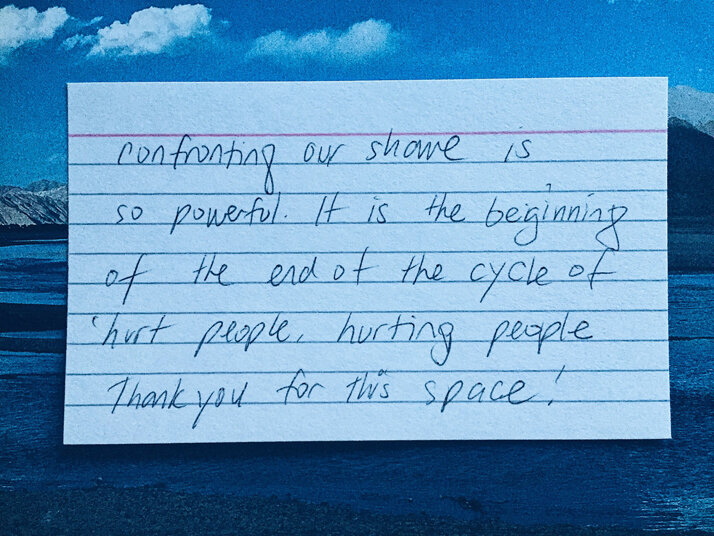 confronting our shame is
so powerful. It is the beginning
of the end of the cycle of
'hurt people, hurting people
Thank you for this space!